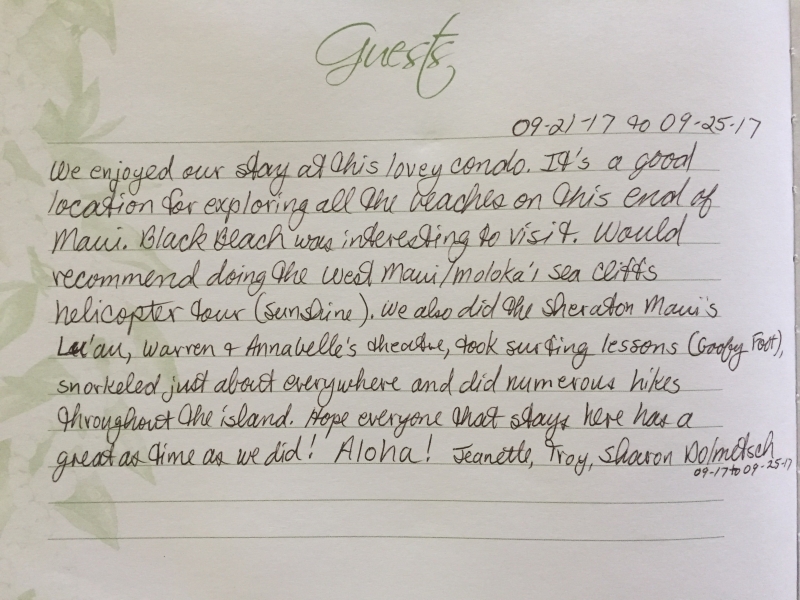 Guests
09-21-17 to 09-25-17
We enjoyed our stay at this lovey condo. It's a good
location for exploring all the beaches on this end of
Maui. Black Beach was interesting to visit. Would
recommend doing the West Maui/moloka'i sea cliffs
helicopter tour (sunshine). We also did the Sheraton Maui's
Lu'au, Warren + Annabelle's theatre, took surfing lessons (Goofy Foot),
snorkeled just about everywhere and did numerous hikes
throughout the island. Hope everyone that stays here has a
great as time as we did! Aloha! Jeanette, Troy, Sharon Dolmetsch
09-17 to 09-25-17